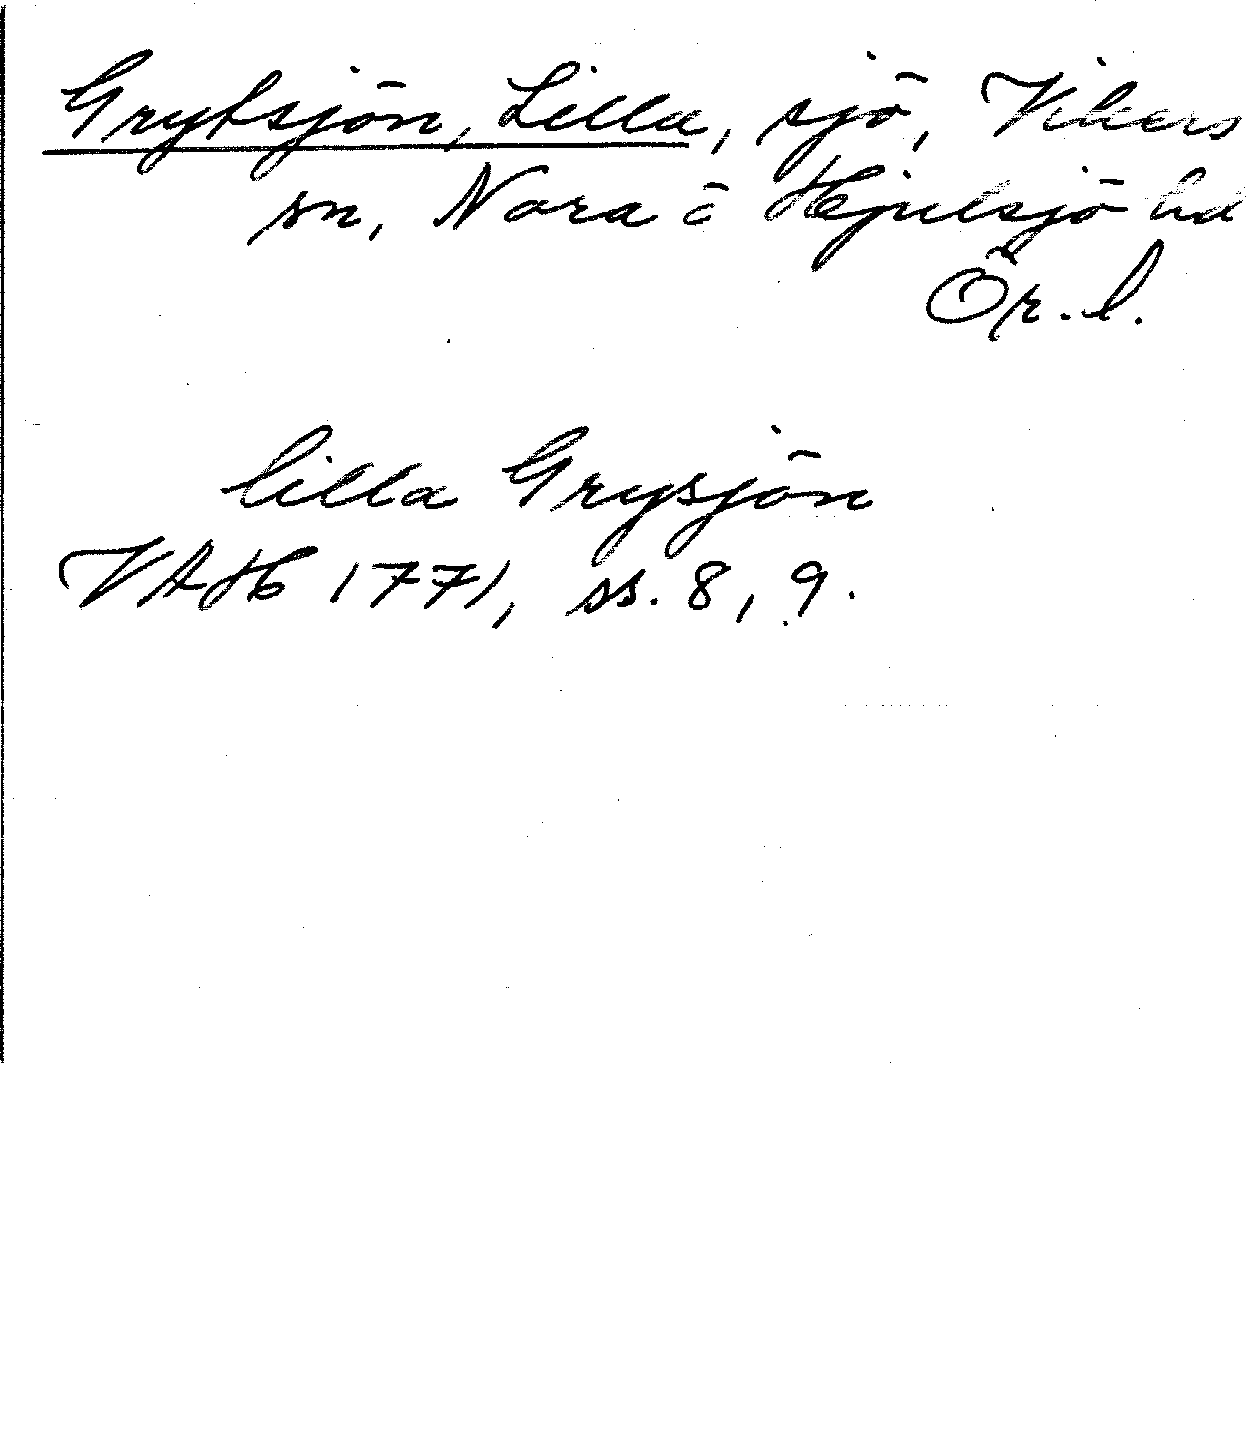 Grytsjön, Lilla, sjö, Vikers
sn, Nora o Hjulsjö hd
Ör. l.
lilla Grysjön
VAH 1771, ss. 8, 9.